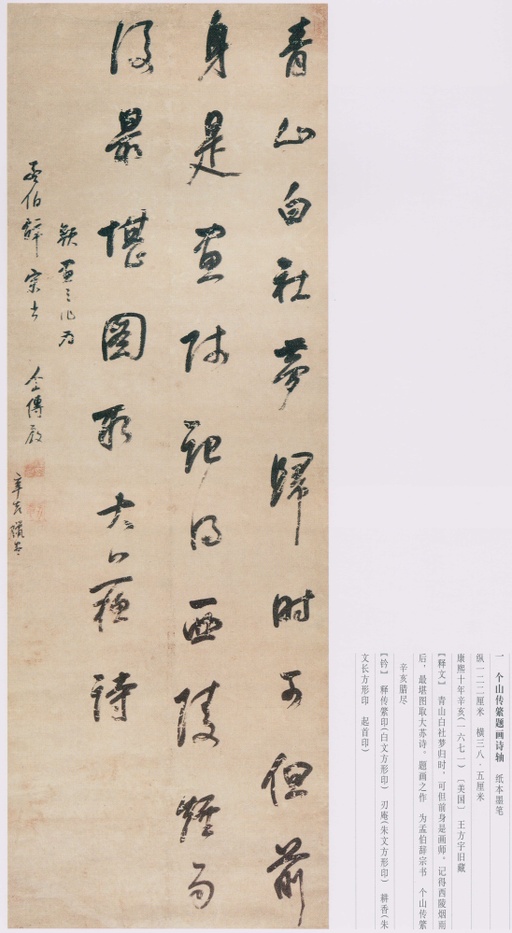 青山白社夢歸時可但前
身是畫師記得西陵煙雨
後最堪圖取大蘇詩
題畫之作为
孟伯辭宗書 个山傳綮
辛亥臘盡
一 个山传綮题画诗轴 纸本墨笔
纵一二二厘米 横三八·五厘米
康熙十年辛亥(一六七一) 〔美国〕王方宇旧藏
[释文] 青山白社梦归时,可但前身是画师。记得西陵烟雨
后,最堪图取大苏诗。题画之作 为孟伯辞宗书 个山传綮
辛亥腊尽
[钤] 释传綮印(白文方形印) 刃庵(朱文方形印) 耕香(朱
文长方形印 起首印)